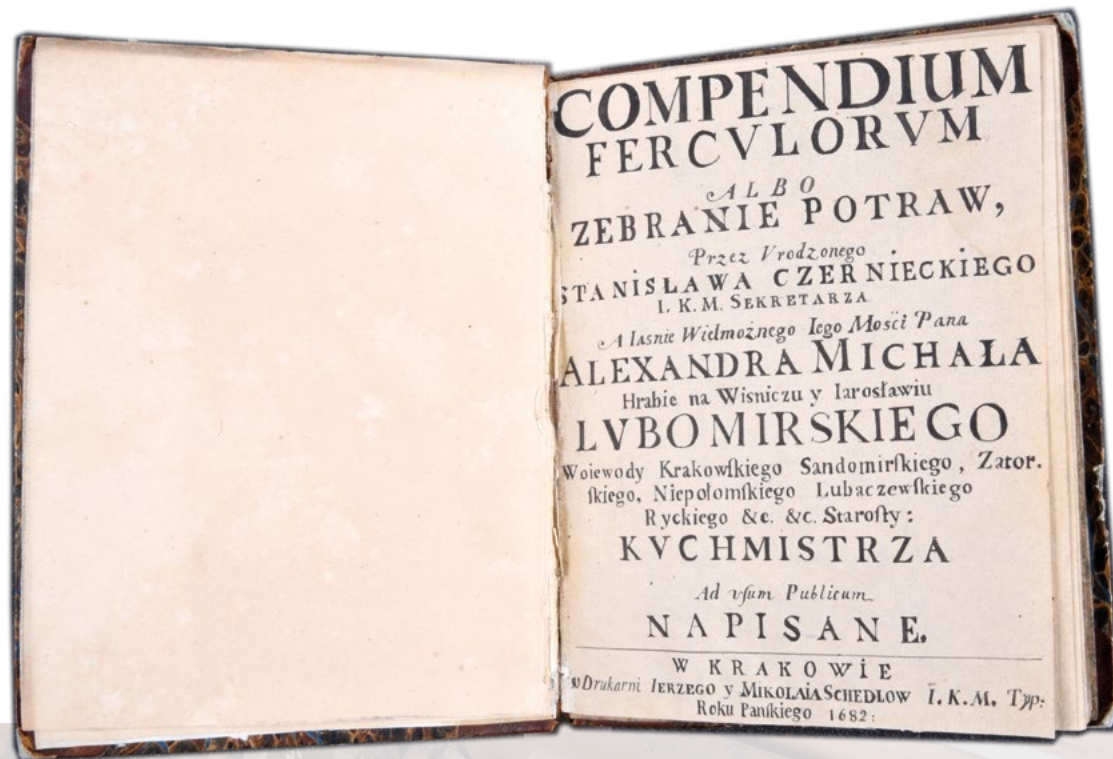 COMPENDIUM
FERCVLORVM
ALBO
ZEBRANIE POTRAW,
Przez Vrodzonego
STANISŁAWA CZERNIECKIEGO
I. K. M. SEKRETARZA
A Iasnie Wielmożnego Iego Mosći Pana
ALEXANDRA MICHAŁA
Hrabie na Wisniczu y Iarosławiu
LVBOMIRSKIEGO
Woiewody Krakowſkiego Sandomirſkiego, Zator.
ſkiego, Niepołomſkiego Lubaczewſkiego
Ryckiego &c. &c. Staroſty:
KVCHMISTRZA
Ad vſum Publicum
NAPISANE.
W KRAKOWIE
w Drukarni IERZEGO y MIKOLAIA SCHEDLOW I. K. M. Typ:
Roku Panſkiego 1682: